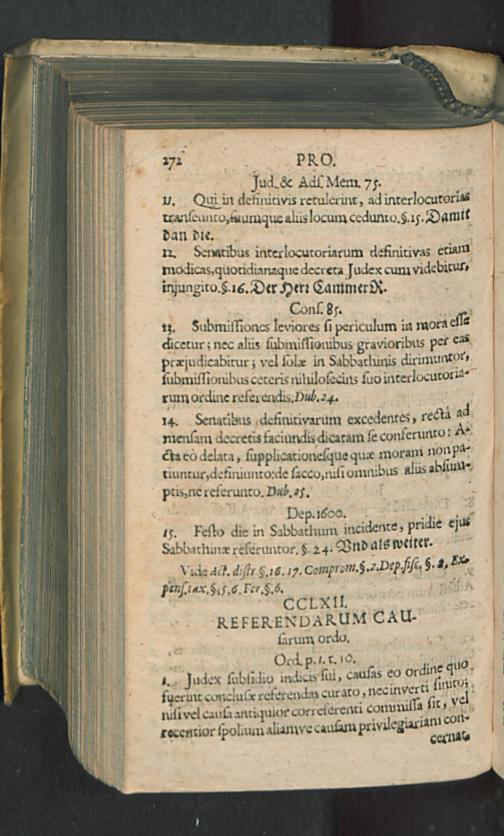 272 PRO.
Jud. & Ads. Mem. 75.
11. Qui in definitivis retulerint, ad interlocutorias
transeunto, suumque aliis locum cedunto. §. 15. Damit
dan die.
12. Senatibus interlocutoriarum definitivas etiam
modicas, quotidianaque decreta Judex cum videbitur,
injungito. §. 16. Der Herr CammerR.
Conſ. 85.
13. Submiſſiones leviores ſi periculum in mora eſſe
dicetur; nec aliis ſubmiſſionibus gravioribus per eas
præjudicabitur; vel ſolæ in Sabbathinis dirimuntor,
ſubmiſſionibus ceteris nihiloſecius ſuo interlocutoria-
rum ordine referendis. Dub. 24.
14. Senatibus definitivarum excedentes, rectà ad
menſam decretis faciundis dicatam ſe conferunto: A-
cta eò delata, ſupplicationeſque quæ moram non pa-
tiuntur, definiunto: de ſacco, niſi omnibus aliis abſum-
ptis, ne referunto. Dub. 25.
Dep. 1600.
15. Feſto die in Sabbathum incidente, pridie ejus
Sabbathinæ referuntor. §. 24. Vnd als weiter.
Vide Act. diſtr. §. 16. 17. Comprom. §. 2. Dep. fiſc, §. 2, Ex-
penſ. tax. §. 5. 6. Fer. §. 6.
CCLXII.
REFERENDARUM CAU-
ſarum ordo.
Ord. p. 1. t. 10.
1. Judex ſubſidio indicis ſui, cauſas eo ordine quo
fuerint concluſæ referendas curato, nec inverti ſinito;
niſi vel cauſa antiquior correferenti commiſſa ſit, vel
recentior ſpolium aliamve cauſam privilegiariam con-
cernat